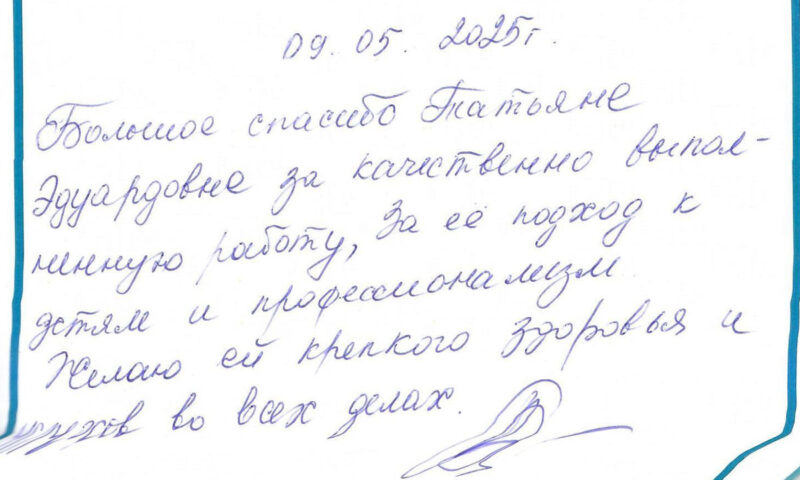 09.05.2025г.
Большое спасибо Татьяне
Эдуардовне за качественно выпол-
ненную работу, за её подход к
детям и профессионализм.
Желаю ей крепкого здоровья и
успехов во всех делах.